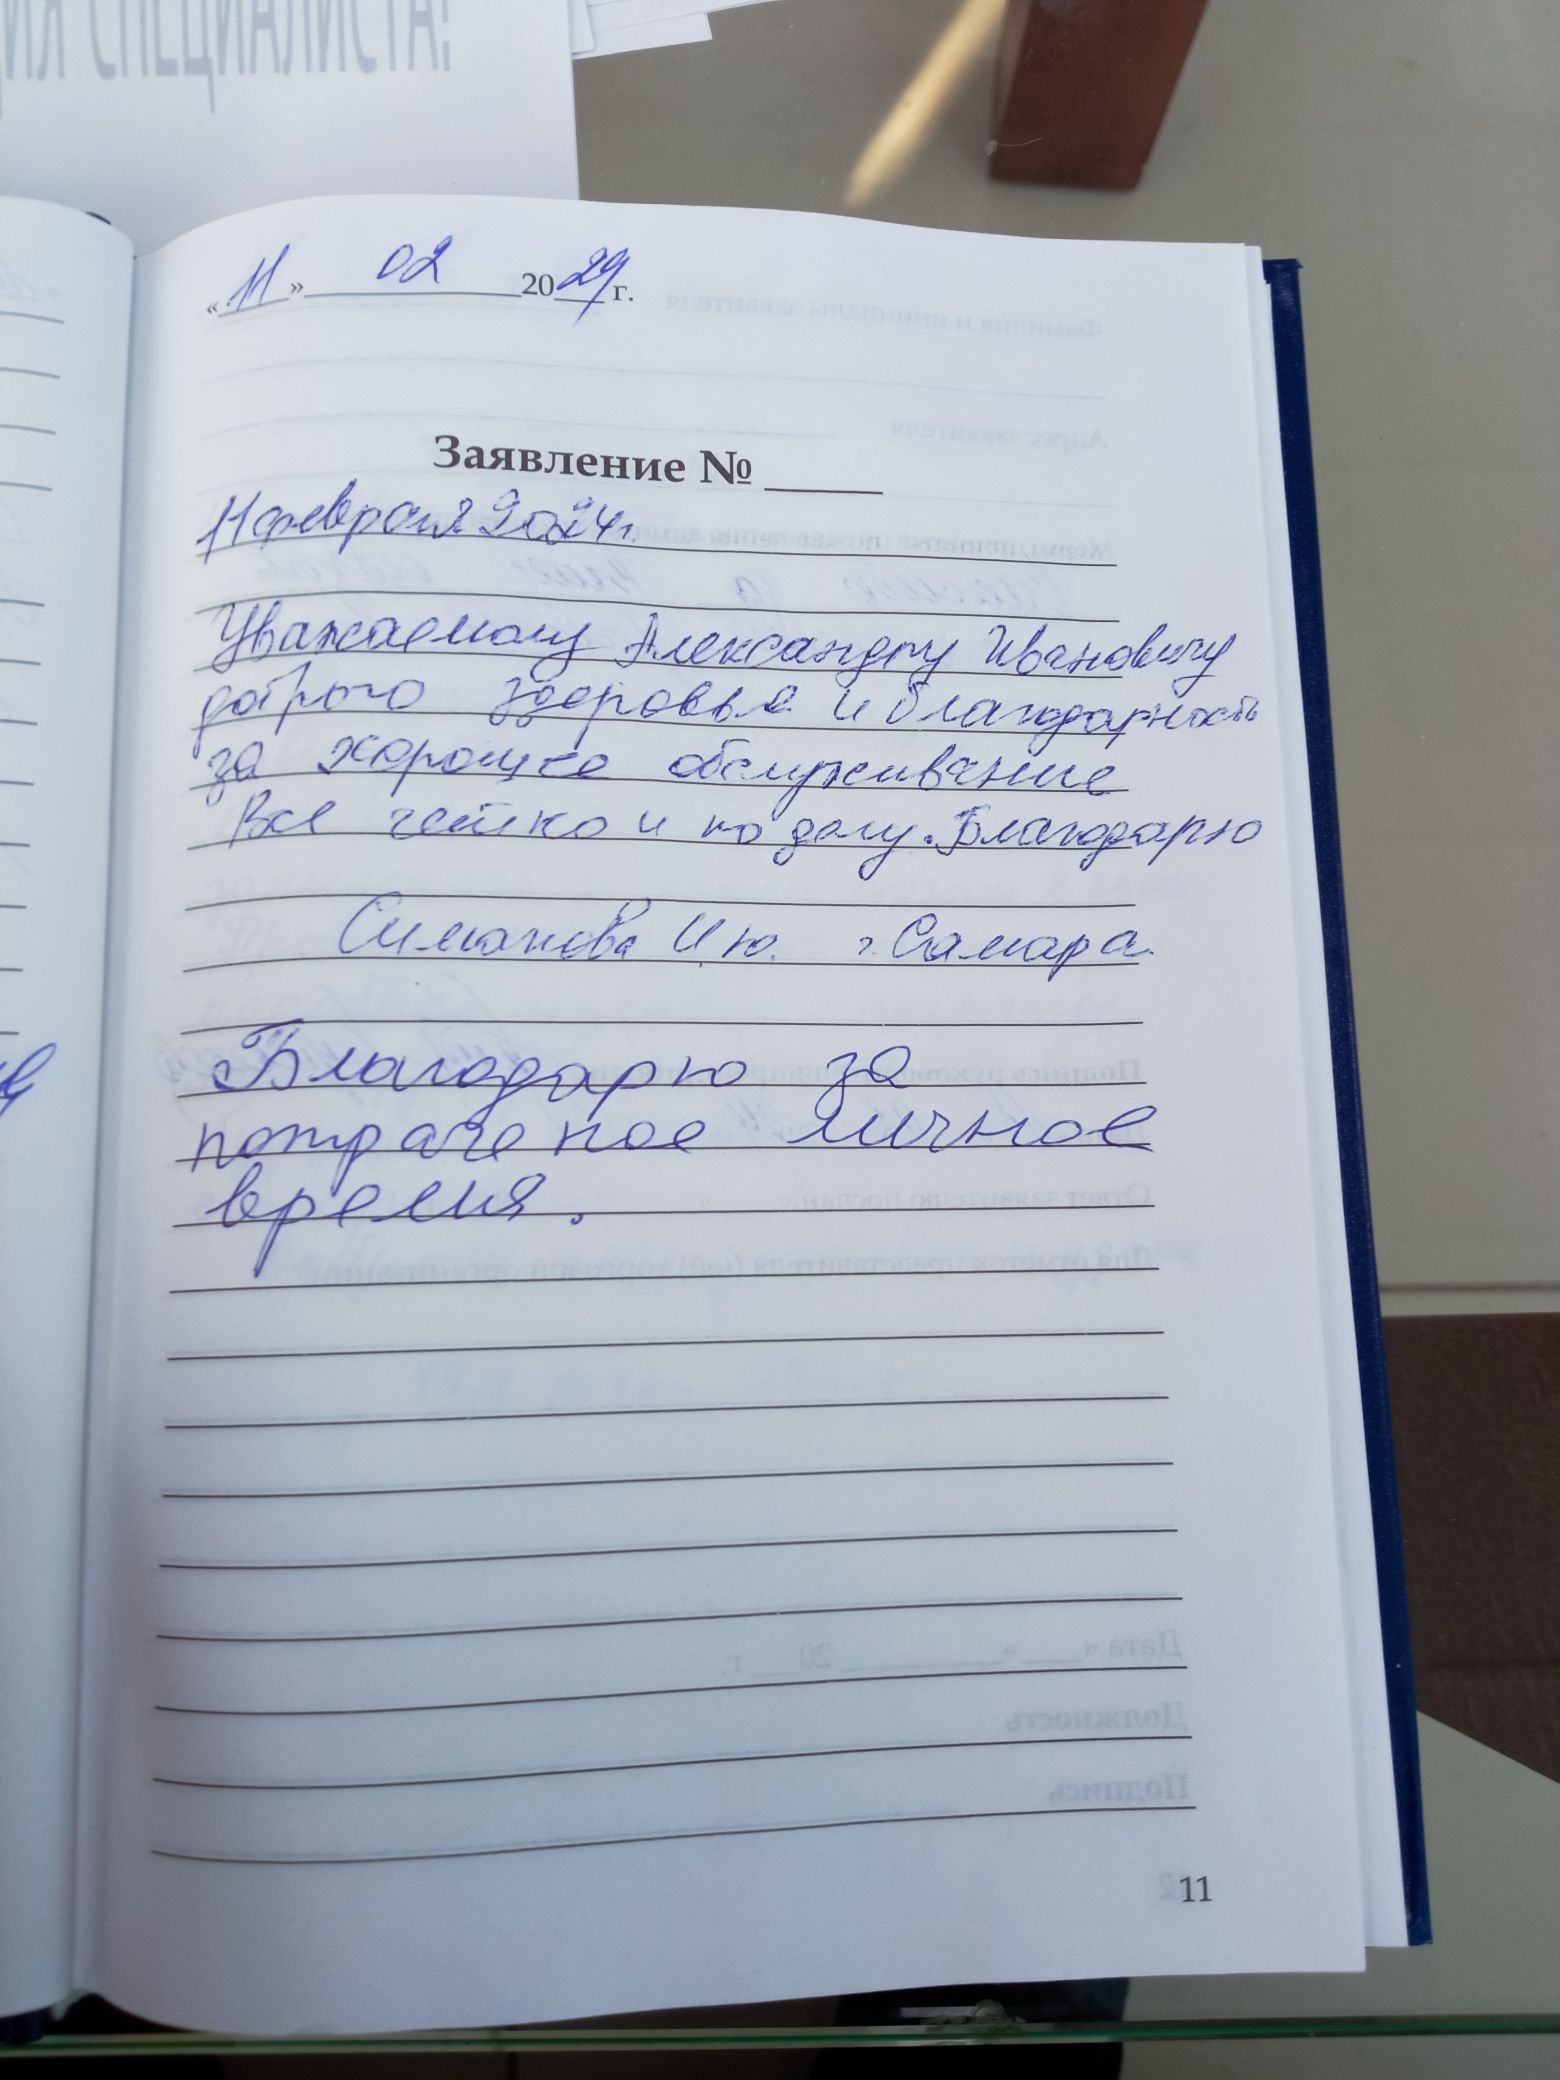 ЦИЯ СПЕЦИАЛИСТА!
«11» 02 2024 г.
Заявление № ____
11 февраля 2024 г.
Уважаемому Александру Ивановичу
доброго здоровья и благодарность
за хорошее обслуживание
Все четко и по делу. Благодарю
Симанова И.Ю. г. Самара.
Благодарю за
потраченое личное
время.
11